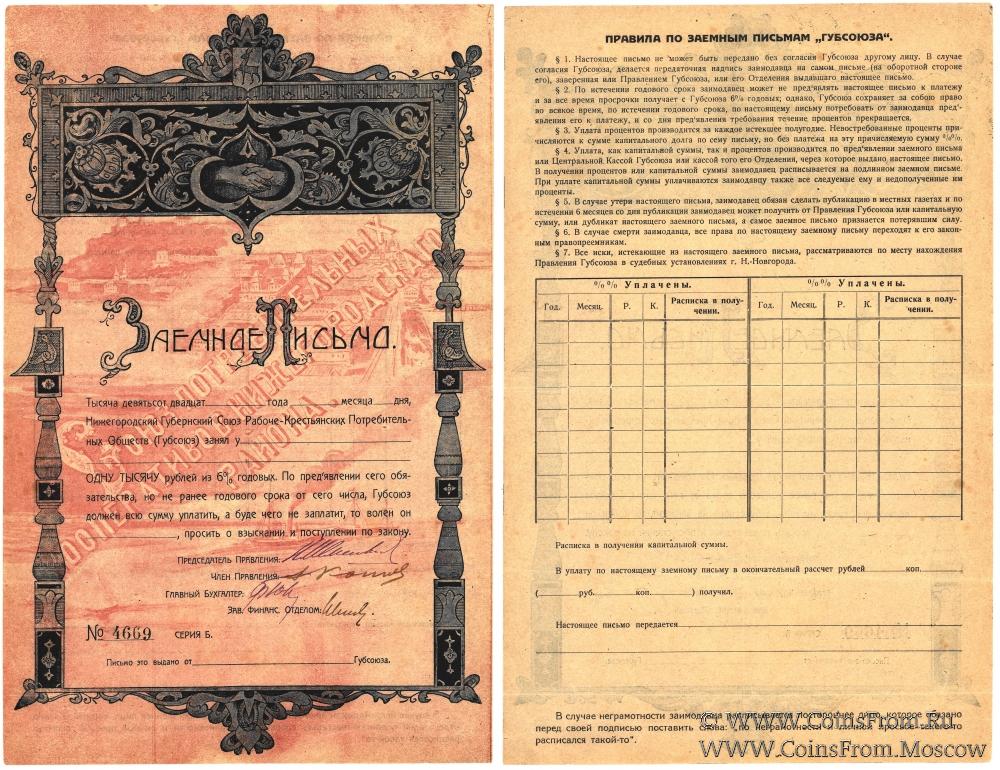 Заемное Письмо.
Тысяча девятьсот двадцат____ года ____ месяца ____ дня,
Нижегородский Губернский Союз Рабоче-Крестьянских Потребитель-
ных Обществ (Губсоюз) занял у
ОДНУ ТЫСЯЧУ рублей из 6% годовых. По пред'явлении сего обя-
зательства, но не ранее годового срока от сего числа, Губсоюз
должен всю сумму уплатить, а буде чего не заплатит, то волен он
____, просить о взыскании и поступлении по закону.
Председатель Правления:
Член Правления:
Главный Бухгалтер:
Зав. Финанс. Отделом:
№ 4669 СЕРИЯ Б.
Письмо это выдано от ____ Губсоюза.
ПРАВИЛА ПО ЗАЕМНЫМ ПИСЬМАМ „ГУБСОЮЗА“.
§ 1. Настоящее письмо не может быть передано без согласия Губсоюза другому лицу. В случае
согласия Губсоюза, делается передаточная надпись заимодавца на самом письме (на оборотной стороне
его), заверенная или Правлением Губсоюза, или его Отделения выдавшаго настоящее письмо.
§ 2. По истечении годового срока заимодавец может не пред'являть настоящее письмо к платежу
и за все время просрочки получает с Губсоюза 6% годовых; однако, Губсоюз сохраняет за собою право
во всякое время, по истечении годового срока, по настоящему письму потребовать от заимодавца пред'-
явления его к платежу, и со дня пред'явления требования течение процентов прекращается.
§ 3. Уплата процентов производится за каждое истекшее полугодие. Невостребованные проценты при-
числяются к сумме капитального долга по сему письму, но без платежа на эту причисляемую сумму %%.
§ 4. Уплата, как капитальной суммы, так и процентов производится по пред'явлении заемного письма
или Центральной Кассой Губсоюза или кассой того его Отделения, через которое выдано настоящее письмо.
В получении процентов или капитальной суммы заимодавец расписывается на подлинном заемном письме.
При уплате капитальной суммы уплачиваются заимодавцу также все следуемые ему и недополученные им
проценты.
§ 5. В случае утери настоящего письма, заимодавец обязан сделать публикацию в местных газетах и по
истечении 6 месяцев со дня публикации заимодавец может получить от Правления Губсоюза или капитальную
сумму, или дубликат настоящего письма, а самое заемное письмо признается потерявшим силу.
§ 6. В случае смерти заимодавца, все права по настоящему заемному письму переходят к его закон-
ным правопреемникам.
§ 7. Все иски, истекающие из настоящего заемного письма, рассматриваются по месту нахождения
Правления Губсоюза в судебных установлениях г. Н.-Новгорода.
%% Уплачены. %% Уплачены.
Год. Месяц. Р. К. Расписка в полу-чении. Год. Месяц. Р. К. Расписка в полу-чении.
Расписка в получении капитальной суммы.
В уплату по настоящему заемному письму в окончательный рассчет рублей ____ коп. ____
( ____ руб. ____ коп. ____ ) получил.
Настоящее письмо передается
В случае неграмотности заимодавца подписывается постороннее лицо, которое обязано
перед своей подписью поставить слова: „по неграмотности и личной просьбе такого-то
расписался такой-то“.
© WWW.CoinsFrom.Ru
WWW.CoinsFrom.Moscow